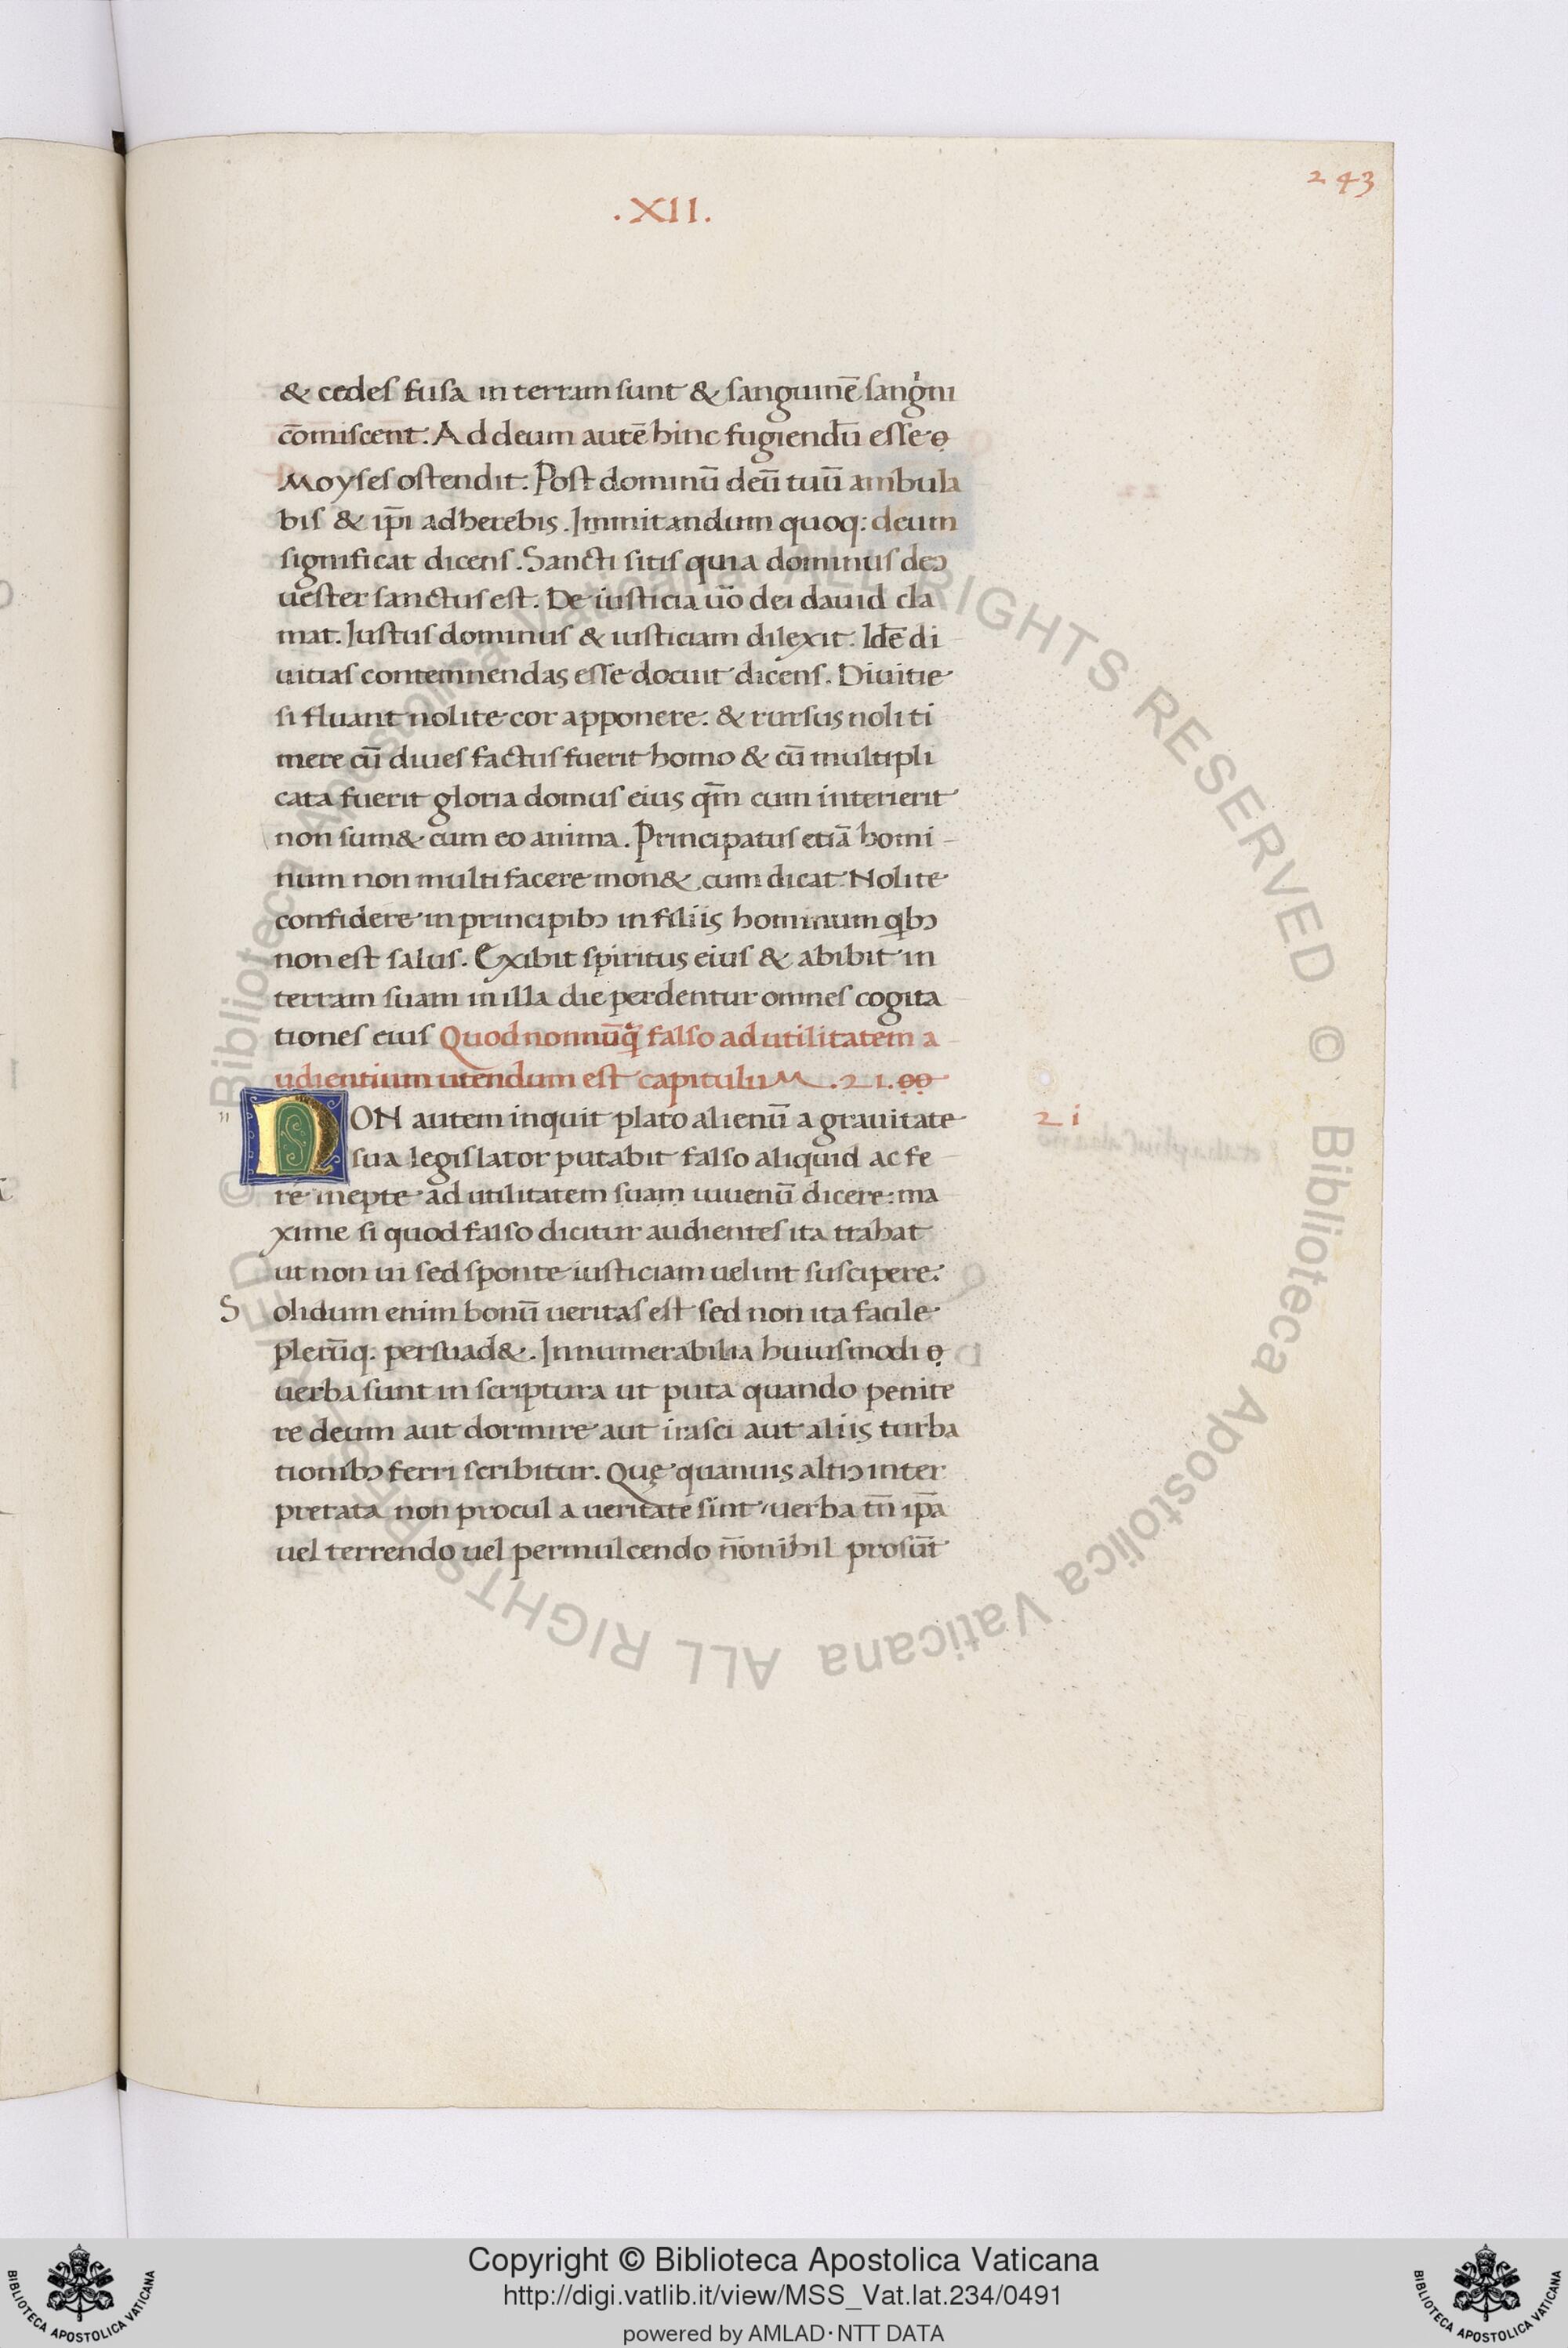 243
.XII.
& cedes fusa in terram sunt & sanguinē sangⁱni
cōmiscent. Ad deum autē hinc fugiendū esse
Moyses ostendit. Post dominū deū tuū ambula
bis & ip̄i adherebis. Immitandum quoq: deum
significat dicens. Sancti sitis quia dominus deꝰ
uester sanctus est. De iusticia ūo dei dauid cla
mat. Iustus dominus & iusticiam dilexit. Idē di
uitias contemnendas esse docuit dicens. Diuitie
si fluant nolite cor apponere: & rursus noli ti
mere cū diues factus fuerit homo & cū multipli
cata fuerit gloria domus eius qm̄ cum interierit
non sum& cum eo anima. Principatus etiā homi-
num non multi facere mon& cum dicat. Nolite
confidere in principibꝰ in filiis hominum qⁱbꝰ
non est salus. Exibit spiritus eius & abibit in
terram suam in illa die perdentur omnes cogita
tiones eius Quod nonnūq̄ falso ad utilitatem a
udientium utendum est capituluM .21.
NON autem inquit plato alienū a grauitate
sua legislator putabit falso aliquid ac fe
re inepte ad utilitatem suam iuuenū dicere: ma
xime si quod falso dicitur audientes ita trahat
ut non ui sed sponte iusticiam uelint suscipere.
Solidum enim bonū ueritas est sed non ita facile
plerūq. persuad&. Innumerabilia huiusmodi
uerba sunt in scriptura ut puta quando penite
re deum aut dormire aut irasci aut aliis turba
tionibꝰ ferri scribitur. Quę quanuis altiꝰ inter
pretata non procul a ueritate sint uerba tn̄ ip̄a
uel terrendo uel permulcendo n̄onihil prosūt
21
© Biblioteca Apostolica Vaticana ALL RIGHTS RESERVED © Biblioteca Apostolica Vaticana ALL RIGHTS RESERVED
Copyright © Biblioteca Apostolica Vaticana
http://digi.vatlib.it/view/MSS_Vat.lat.234/0491
powered by AMLAD·NTT DATA
BIBLIOTECA APOSTOLICA VATICANA
BIBLIOTECA APOSTOLICA VATICANA